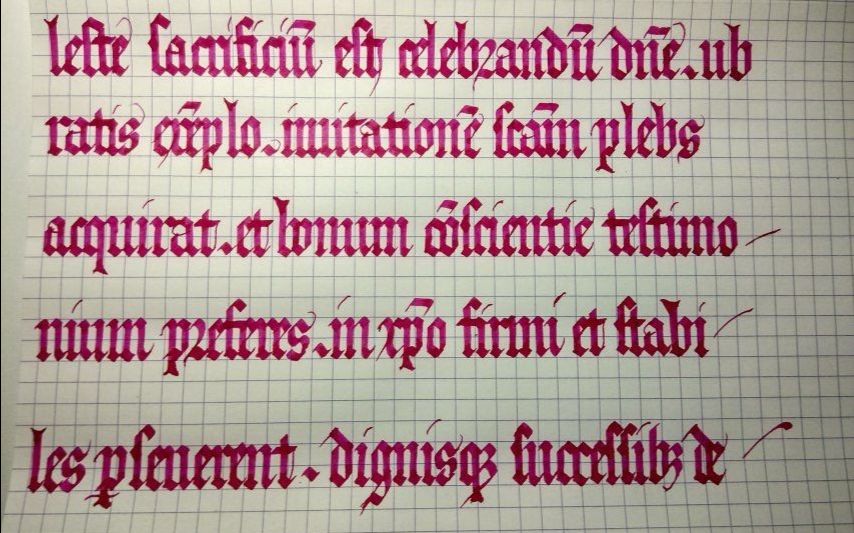 leſte ſacrificiū eſt celebrandū dn̄e. ub
ratis exēplo. imitationē ſcām plebs
acquirat. et bonum cōſcientie teſtimo
nium preferes. in xp̄o firmi et ſtabi
les ꝑſeuerent. digniſqꝫ ſucceſſibꝫ de